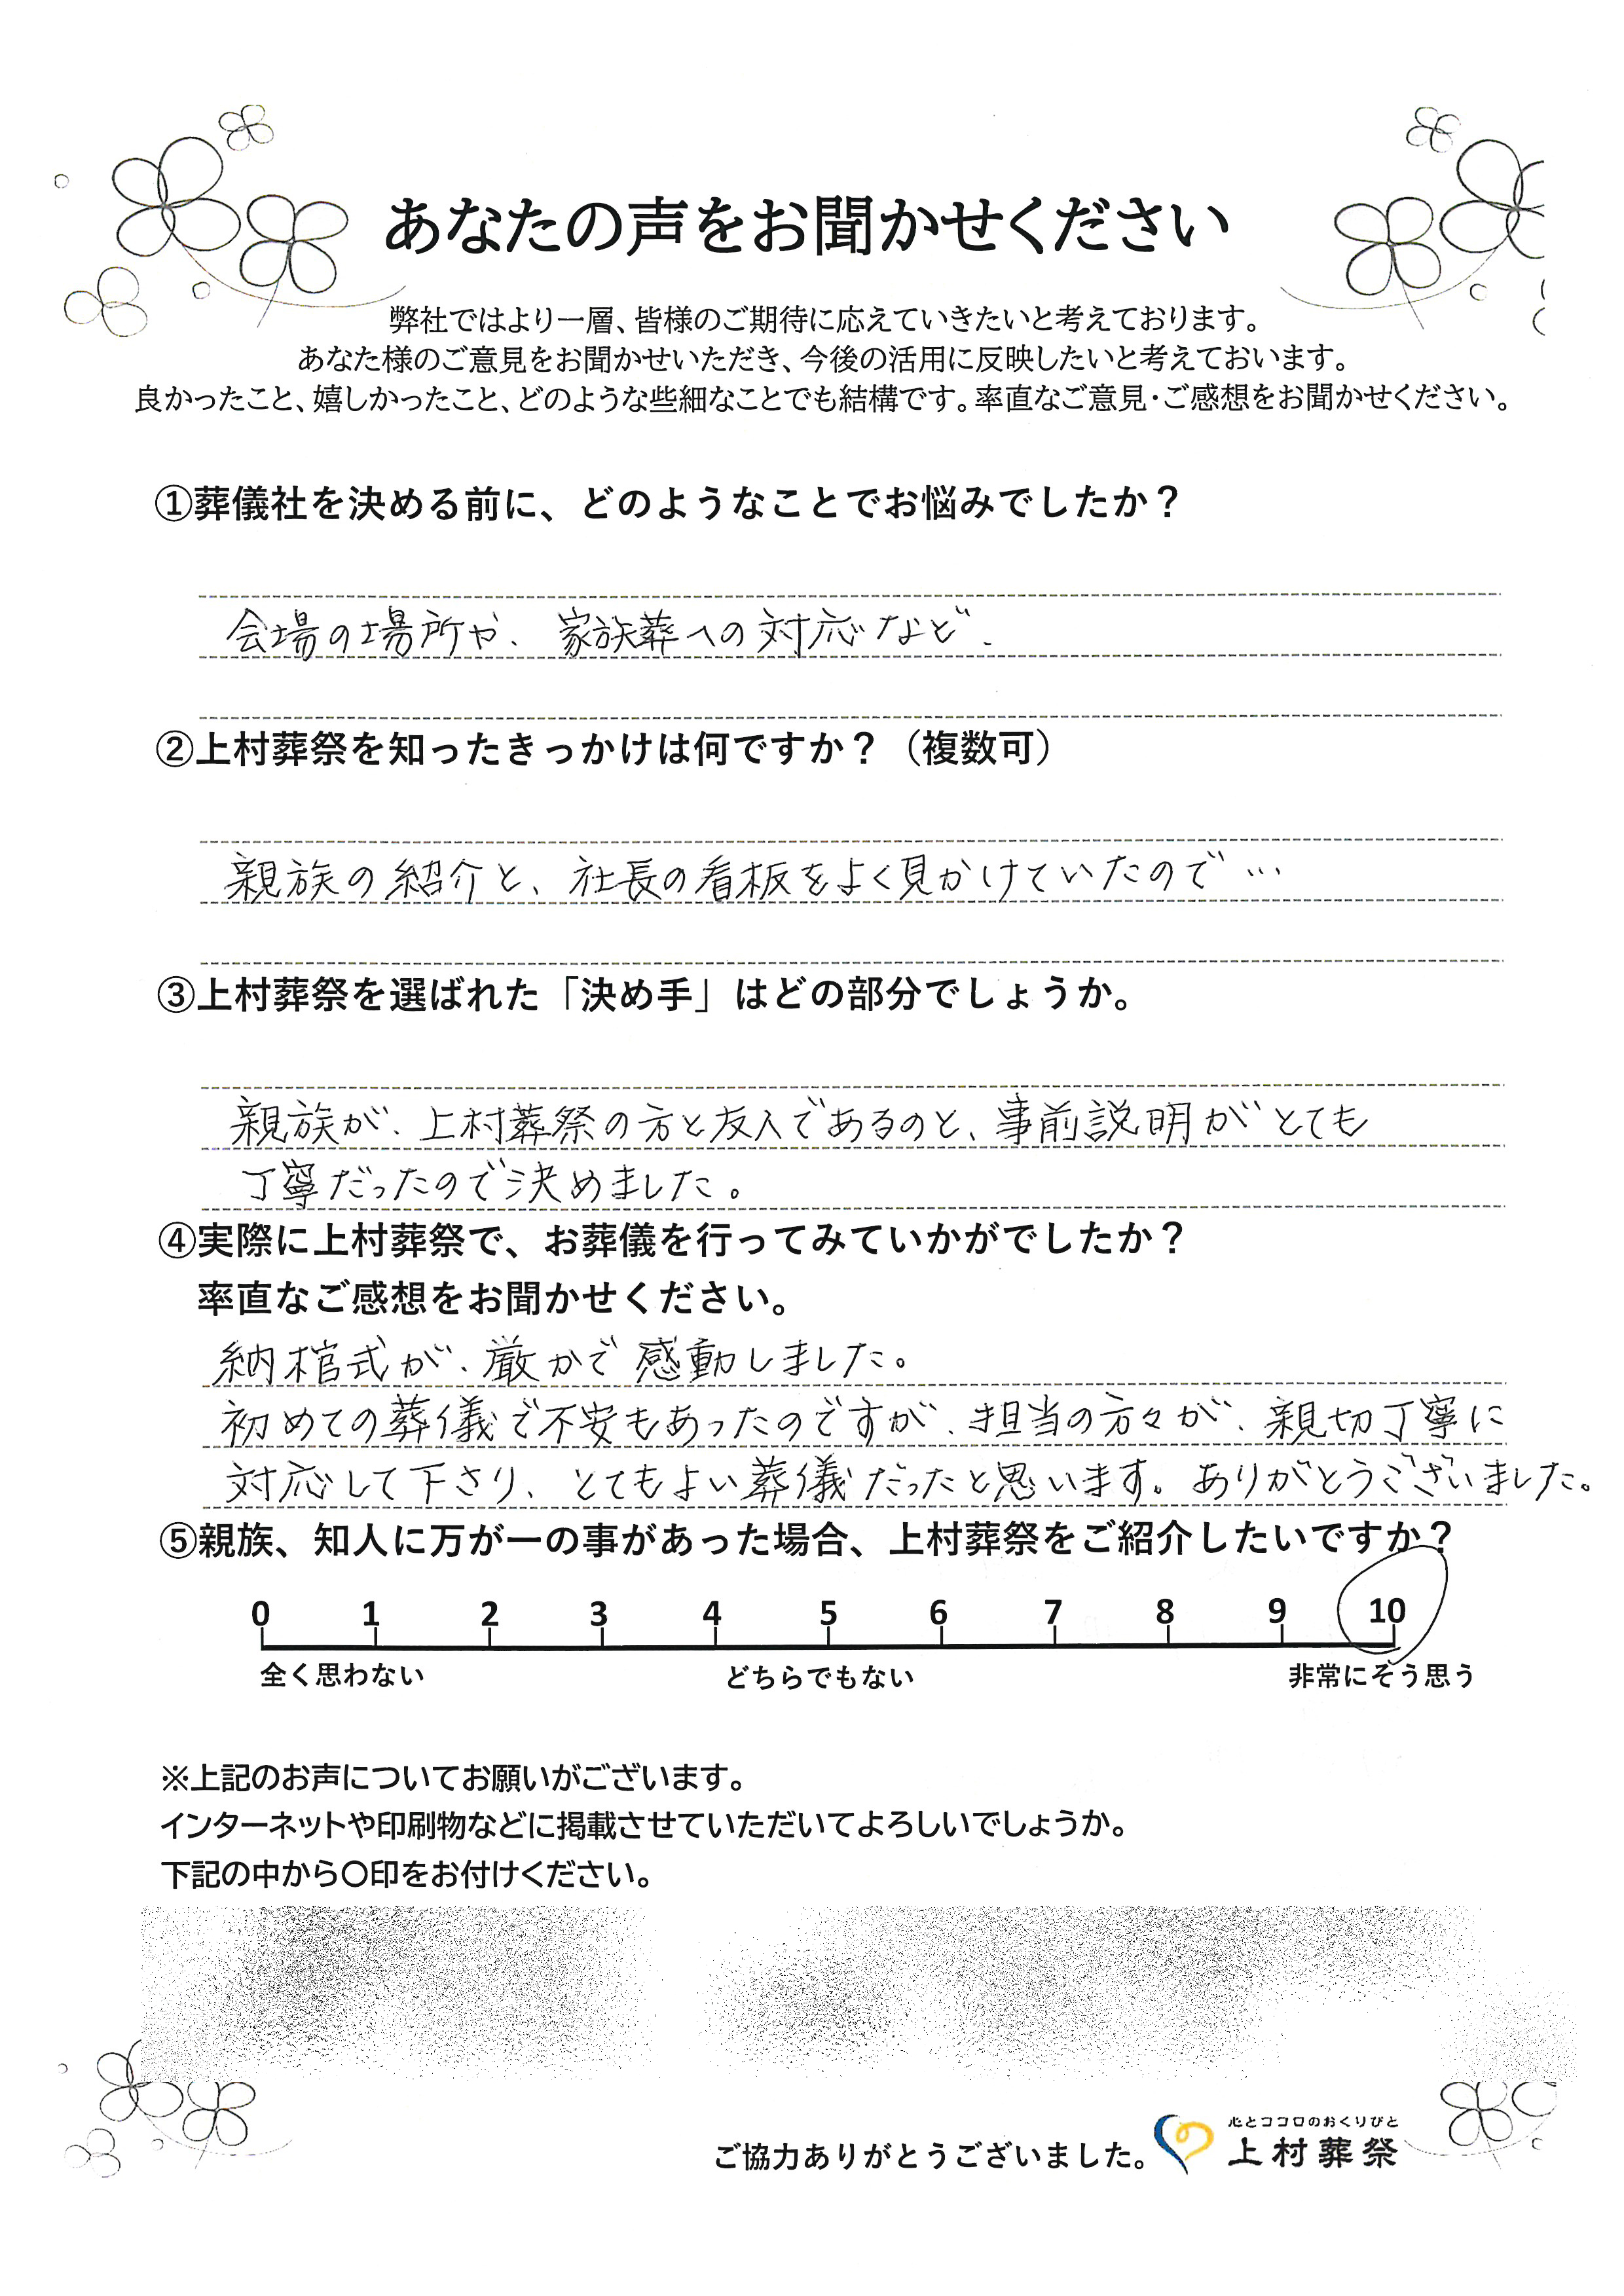 あなたの声をお聞かせください
弊社ではより一層、皆様のご期待に応えていきたいと考えております。
あなた様のご意見をお聞かせいただき、今後の活用に反映したいと考えておいます。
良かったこと、嬉しかったこと、どのような些細なことでも結構です。率直なご意見・ご感想をお聞かせください。
①葬儀社を決める前に、どのようなことでお悩みでしたか？
会場の場所や、家族葬への対応など、
②上村葬祭を知ったきっかけは何ですか？（複数可）
親族の紹介と、社長の看板をよく見かけていたので…
③上村葬祭を選ばれた「決め手」はどの部分でしょうか。
親族が、上村葬祭の方と友人であるのと、事前説明がとても
丁寧だったので決めました。
④実際に上村葬祭で、お葬儀を行ってみていかがでしたか？
率直なご感想をお聞かせください。
納棺式が、厳かで感動しました。
初めての葬儀で不安もあったのですが、担当の方々が、親切丁寧に
対応して下さり、とてもよい葬儀だったと思います。ありがとうございました。
⑤親族、知人に万が一の事があった場合、上村葬祭をご紹介したいですか？
0 1 2 3 4 5 6 7 8 9 10
全く思わない どちらでもない 非常にそう思う
※上記のお声についてお願いがございます。
インターネットや印刷物などに掲載させていただいてよろしいでしょうか。
下記の中から〇印をお付けください。
心とココロのおくりびと
ご協力ありがとうございました。 上村葬祭